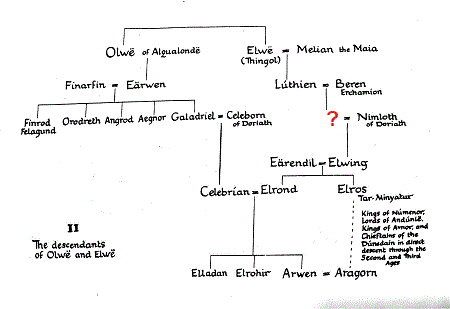 Olwë of Alqualondë
Elwë = Melian the Maia
(Thingol)
Finarfin = Eärwen
Lúthien = Beren
Erchamion
Finrod
Felagund
Orodreth Angrod Aegnor Galadriel = Celeborn
of Doriath
? = Nimloth
of Doriath
Eärendil = Elwing
Celebrían = Elrond
Elros
Tar-Minyatur
Kings of Númenor,
Lords of Andúnië,
Kings of Arnor, and
Chieftains of the
Dúnedain in direct
descent through the
Second and Third
Ages
II
The descendants
of Olwë and Elwë
Elladan Elrohir Arwen = Aragorn